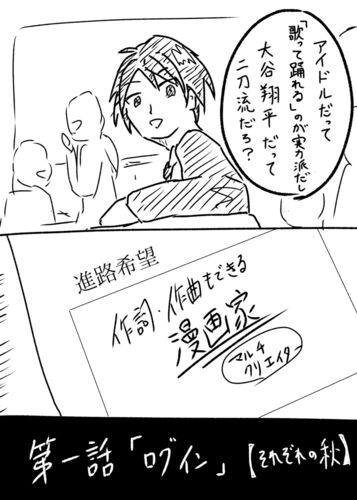 アイドルだって
「歌って踊れる」のが実力派だし
大谷翔平だって
二刀流だろ？
進路希望
作詞・作曲もできる
漫画家
マルチ
クリエイター
第一話「ログイン」【それぞれの秋】